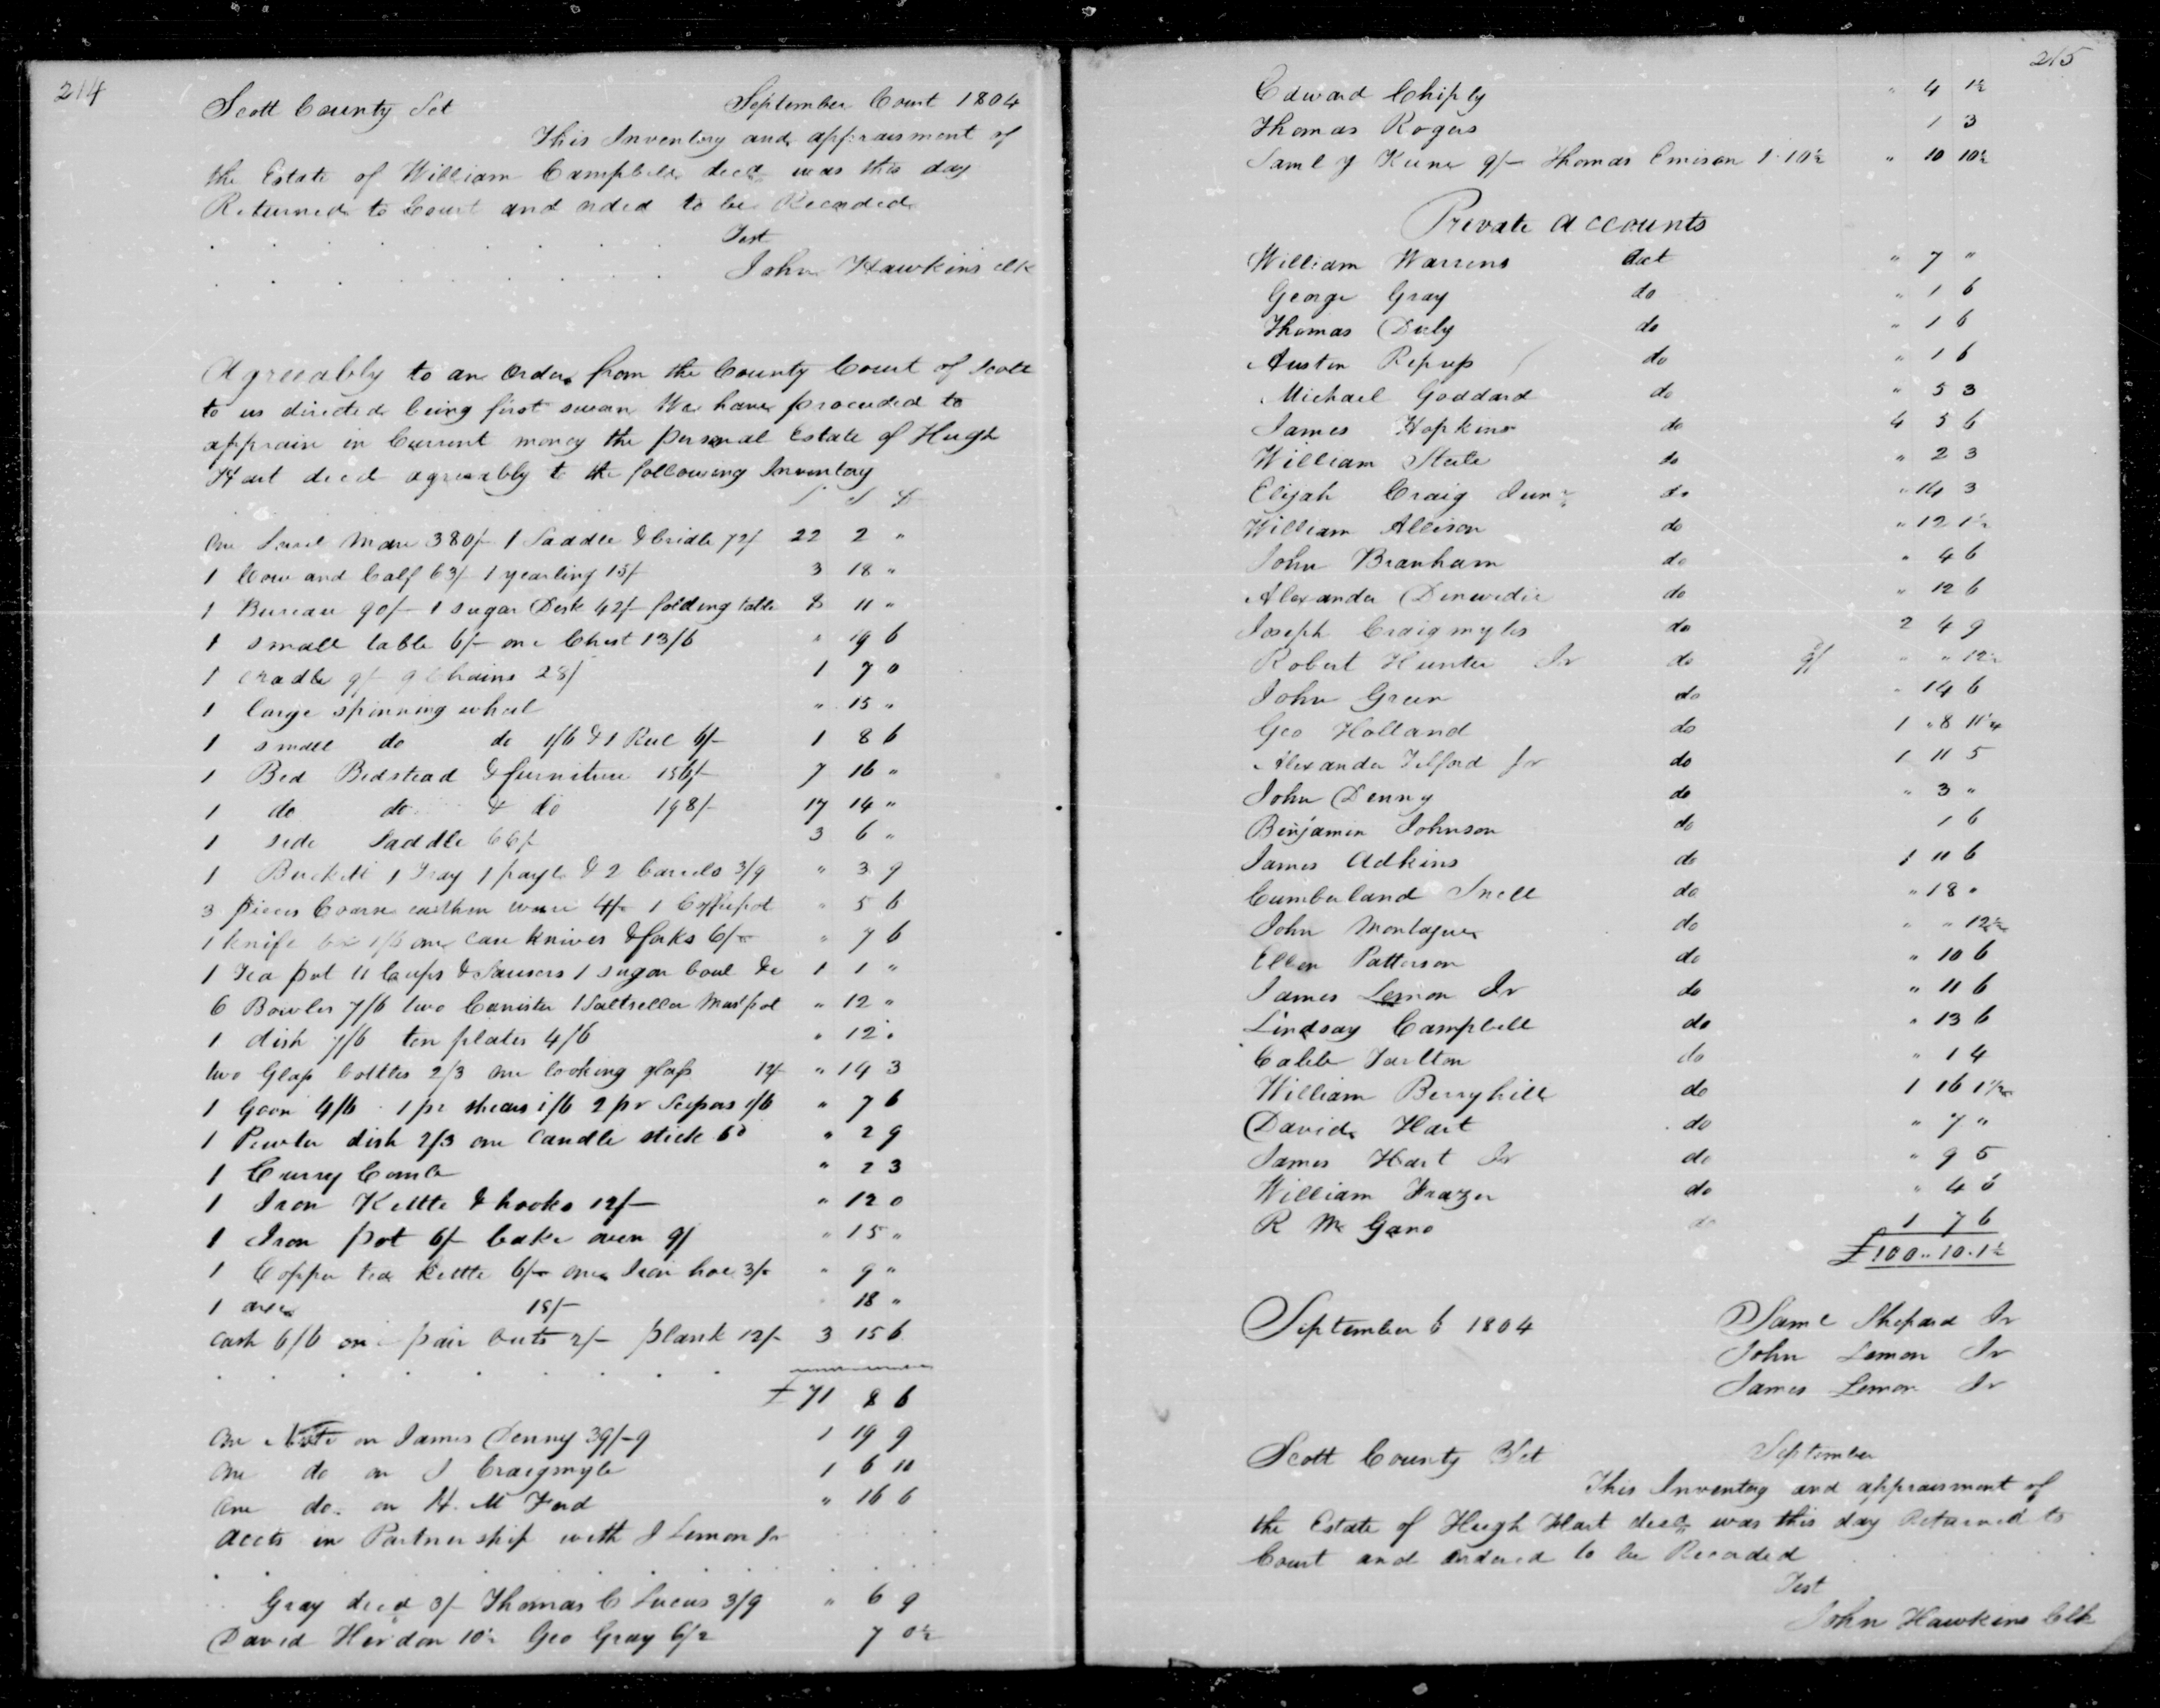 214
Scott County Sct September Court 1804
This Inventory and appraisment of
the Estate of William Campbell decd was this day
Returned to Court and orded to be Recorded
Test
John Hawkins clk
Agreeably to an Order from the County Court of Scott
to us directed being first sworn We have proceeded to
appraise in Current money the personal Estate of Hugh
Hart decd agreeably to the following Inventory
£ S D
One Sorrel Mare 380/- 1 Saddle & bridle 72/ 22 2 "
1 Cow and Calf 63/- 1 yearling 15/ 3 18 "
1 Bureau 90/- 1 sugar Desk 42/- folding table 8 11 "
1 small table 6/- one Chest 13/6 " 19 6
1 cradle 9/- 9 Chairs 28/ 1 7 0
1 large spinning wheel " 15 "
1 small do do 1/6 & 1 Reel 6/- 1 8 6
1 Bed Bedstead & furniture 156/- 7 16 "
1 do do & do 198/- 17 14 "
1 side Saddle 66/- 3 6 "
1 Buckett 1 Tray 1 payle & 2 barrels 3/9 " 3 9
3 pieces Coarse earthen ware 4/- 1 Coffepot " 5 6
1 knife box 1/6 one case knives & forks 6/- " 7 6
1 Tea pot 11 Cups & Sausers 1 sugar boul &c 1 1 "
6 Bowles 7/6 two Canister 1 Saltsellar Mustpot " 12 "
1 dish 7/6 ten plates 4/6 " 12 "
two Glass bottles 2/3 one looking glass 12/- " 14 3
1 Goon 4/6 1 pr shears 1/6 2 pr Scissors 1/6 " 7 6
1 Pewter dish 2/3 one candle stick 6d " 2 9
1 Curry Comb " 2 3
1 Iron Kettle & hooks 12/- " 12 0
1 Iron pot 6/- bake oven 9/ " 15 "
1 Copper tea kettle 6/- one Iron hoe 3/- " 9 "
1 18/- 18 "
Cash 6/6 one pair buts 2/- plank 12/- 3 15 6
£ 71 8 6
One Note on James Denny 39/-9 1 19 9
One do on J Craigmyle 1 6 10
One do on H. M Ford " 16 6
Accts in Partnership with J Lemon Jr
Gray decd 3/- Thomas C Lucus 3/9 " 6 9
David Herndon 10½ Geo Gray 6/2 7 0½
215
Edward Chiply " 4 1½
Thomas Rogers 1 3
Saml Y Keene 9/- Thomas Emison 1 10½ " 10 10½
Private accounts
William Warrens Act " 7 "
George Gray do " 1 6
Thomas Duly do " 1 6
Austin do " 1 6
Michael Goddard do " 5 3
James Hopkins do 4 5 6
William Steele do " 2 3
Elijah Craig Junr do " 14 3
William Allison do " 12 1½
John Branham do " 4 6
Alexander Dinwidie do " 12 6
Joseph Craigmyles do 2 4 9
Robert Hunter Jr do 9/ " " 12½
John Green do " 14 6
Geo Holland do 1 " 8 11¼
Alexander Telford Jr do 1 11 5
John Denny do " 3 "
Benjamin Johnson do 1 6
James Adkins do 1 11 6
Cumberland Snell do " 18 "
John Montague do " " 12½
Ellen Patterson do " 10 6
James Lemon Jr do " 11 6
Lindsay Campbell do " 13 6
Caleb Tarlton do " 1 4
William Berryhill do 1 16 1½
David Hart do " 7 "
James Hart Jr do " 9 5
William Frazer do " 4 6
R M Gano do 1 7 6
£100 " 10 . 1½
September 6 1804 Saml Shepard Jr
John Lemon Jr
James Lemon Jr
Scott County Sct September
This Inventory and appraisment of
the Estate of Hugh Hart decd was this day Returned to
Court and ordered to be Recorded
Test
John Hawkins Clk